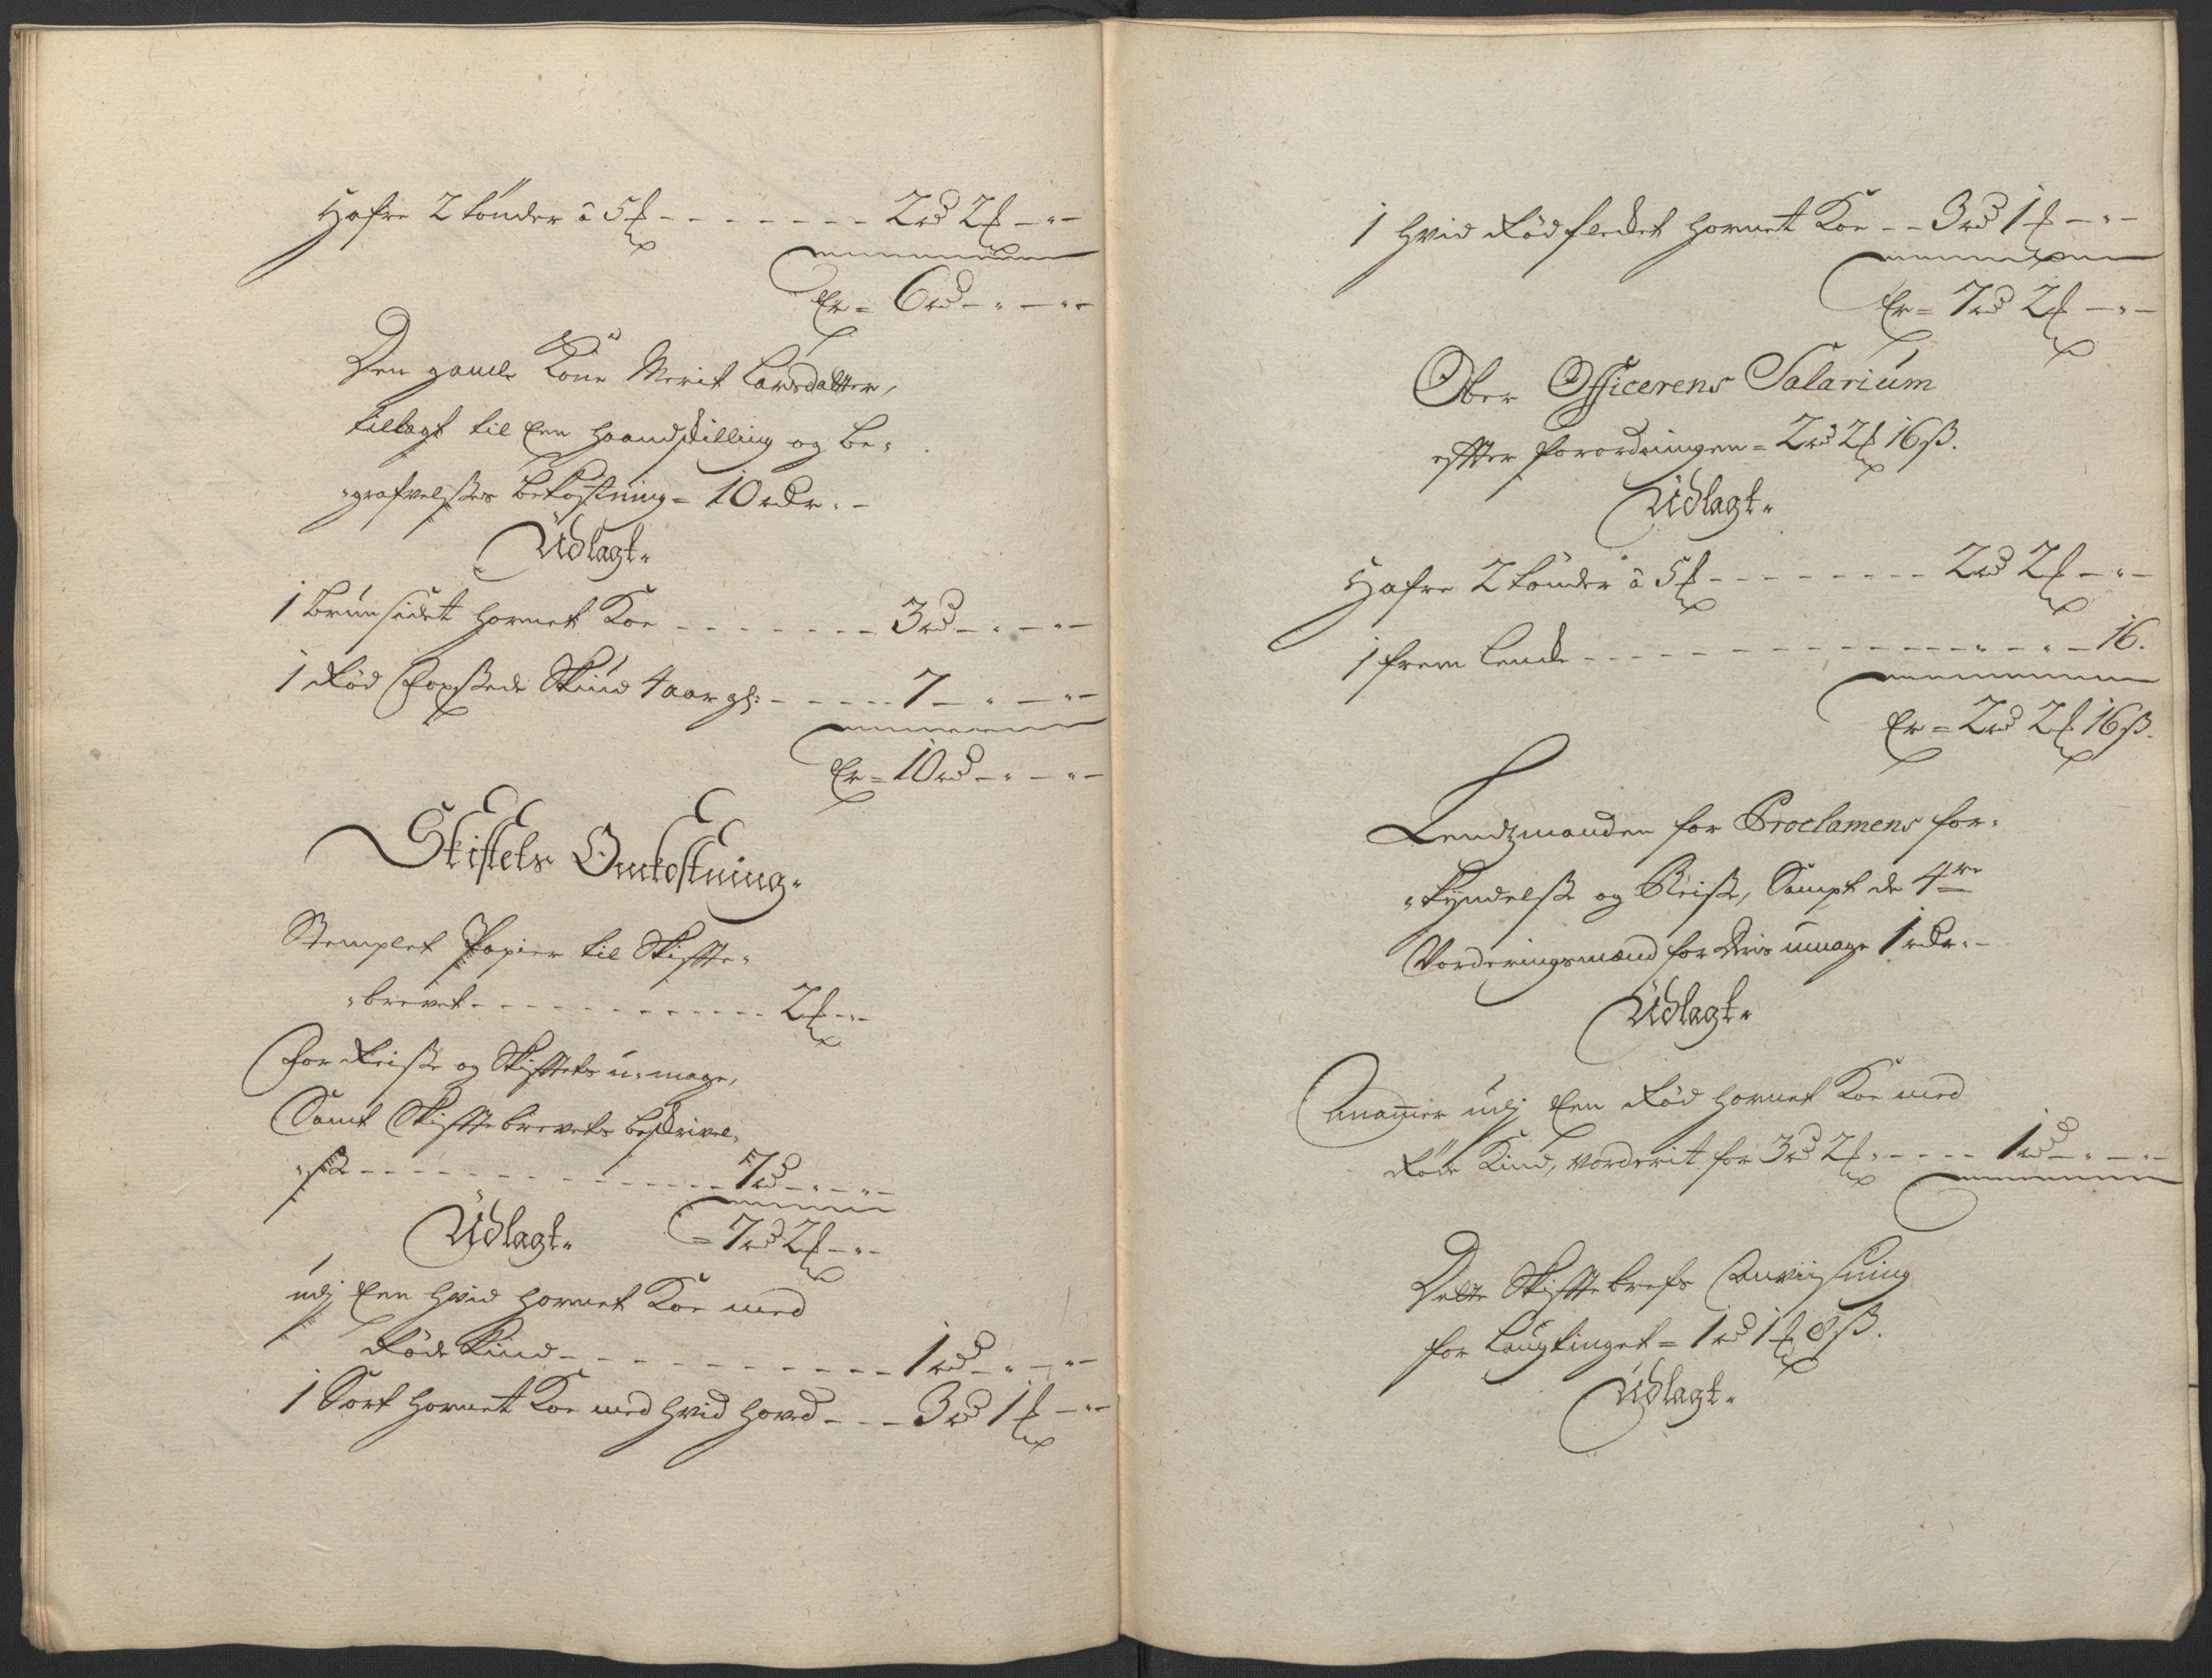 Hafre 2 tønder â 5 ß - - - - - - - - 2 rd 2 ß - " -
Er = 6 rd - " - " -
Den gamle Kone Merit Larsdatter,
tillagt til Een haandskilling og be-
"grafvelses bekostning = 10 rdr. -
Udlagt"
1 Brunsidet hornet Koe - - - - - - - 3 rd - " - " -
1 Rød Hopsede Skiud 4 aar gl: - - - - - 7 - " - " -
Er = 10 rd - " - " -
Skiftets Omkostning"
Stemplet Papier til Skiffte-
"brevet - - - - - - - - - - - - 2 ß - " -
For Reise og Skifftets u-mage,
Samt Skifftebrevets beskrivel-
"se - - - - - - - - - - - - - 7 rd - " - " -
Udlagt" = 7 rd 2 ß - " -
udj Een hvid hornet Koe med
Røde Kind - - - - - - - - - - - 1 rd - " - " -
1 Sort hornet Koe med hvid hoved - - - 3 rd 1 ß - " -
1 hvid Rødflecket hornet Koe - - 3 rd 1 ß - " -
Er = 7 rd 2 ß - " -
Ober Officerens Salarium
effter forordningen = 2 rd 2 ß 16 ß.
Udlagt"
Hafre 2 tønder â 5 ß - - - - - - - - 2 rd 2 ß - " -
1 frem lende - - - - - - - - - - - - - " - " - 16.
Er = 2 rd 2 ß 16 ß.
Lendzmanden for Proclamens for-
"kyndelse og Reise, Sampt de 4re
Vorderingsmænd for deris umage 1 rdr. -
Udlagt"
Annamer udj Een Rød hornet Koe med
Røde Kind, vorderit for 3 rd 2 ß - - - - 1 rd - " - " -
Dette Skifftebrefs Anviisning
for Laugtinget = 1 rd 1 ß 8 ß.
Udlagt"